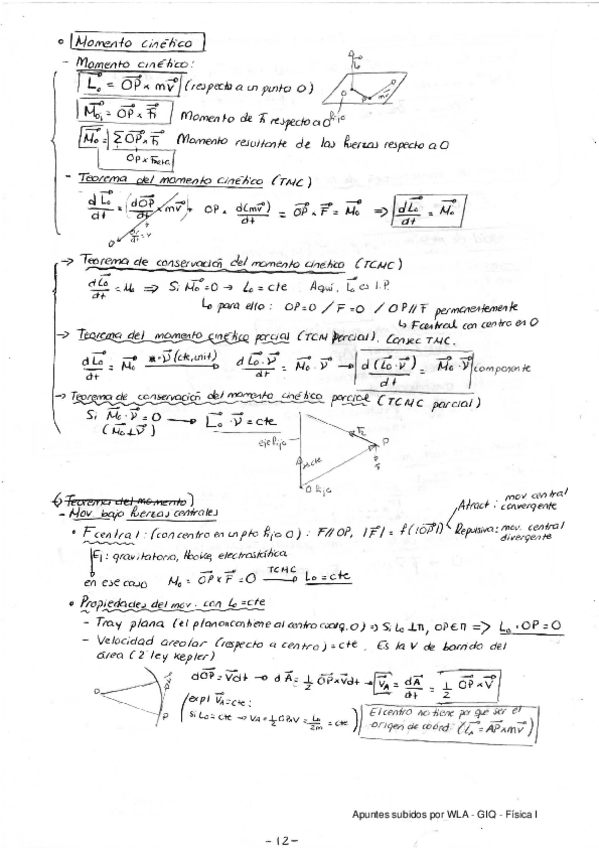 ° Momento cinético
- Momento cinético:
L⃗₀ = OP⃗ x mv⃗ (respecto a un punto O)
M⃗₀ᵢ = OP⃗ x F⃗ᵢ Momento de F⃗ᵢ respecto a O fijo
M⃗₀ = ∑ OP⃗ x F⃗ᵢ Momento resultante de las fuerzas respecto a O
- Teorema del momento cinético (TMC)
dL⃗₀/dt = (dOP⃗/dt x mv⃗) + OP x d(mv⃗)/dt = OP⃗ x F⃗ = M⃗₀ ⇒ dL⃗₀/dt = M⃗₀
→ Teorema de conservación del momento cinético (TCMC)
dL⃗₀/dt = M₀ ⇒ Si M⃗₀ = 0 → L₀ = cte Aquí, L⃗₀ es I.P.
↳ para ello: OP=0 / F=0 / OP//F permanentemente
↳ F central con centro en O
→ Teorema del momento cinético parcial (TCM parcial). Consec TMC.
dL⃗₀/dt = M⃗₀ → dL⃗₀·ν⃗/dt = M⃗₀·ν⃗ → d(L⃗₀·ν⃗)/dt = M⃗₀·ν⃗ componente
→ Teorema de conservación del momento cinético parcial (TCMC parcial)
Si M⃗₀·ν⃗ = 0 → L⃗₀·ν⃗ = cte
(M⃗₀⊥ν⃗)
eje fijo
P
O fijo
Teorema del momento)
- Mov bajo fuerzas centrales
• F central: (con centro en un pto fijo O): F//OP, |F⃗| = f(|OP⃗|)
Atract: mov central convergente
Repulsiva: mov. central divergente
Ej: gravitatoria, Hooke, electrostática
en ese caso M₀ = OP⃗ x F⃗ = 0 TCMC → L₀ = cte
• Propiedades del mov. con L₀=cte
- Tray plana (el plano contiene al centro O) ⇒ Si L₀⊥π, OP∈π ⇒ L₀·OP=0
- Velocidad areolar (respecto a centro) = cte. Es la V de barrido del
área (2ª ley kepler)
dOP⃗ = v⃗dt → dA⃗ = 1/2 OP⃗ x v⃗dt → V⃗_A = dA⃗/dt = 1/2 OP⃗ x v⃗
expl V⃗_A = cte:
Si L₀ = cte → V_A = 1/2 OP x V = L₀/2m = cte
El centro no tiene por que ser el
origen de coord (L⃗_A = AP⃗ x mv⃗)
O
P
Apuntes subidos por WLA - GIQ - Física I
-12-